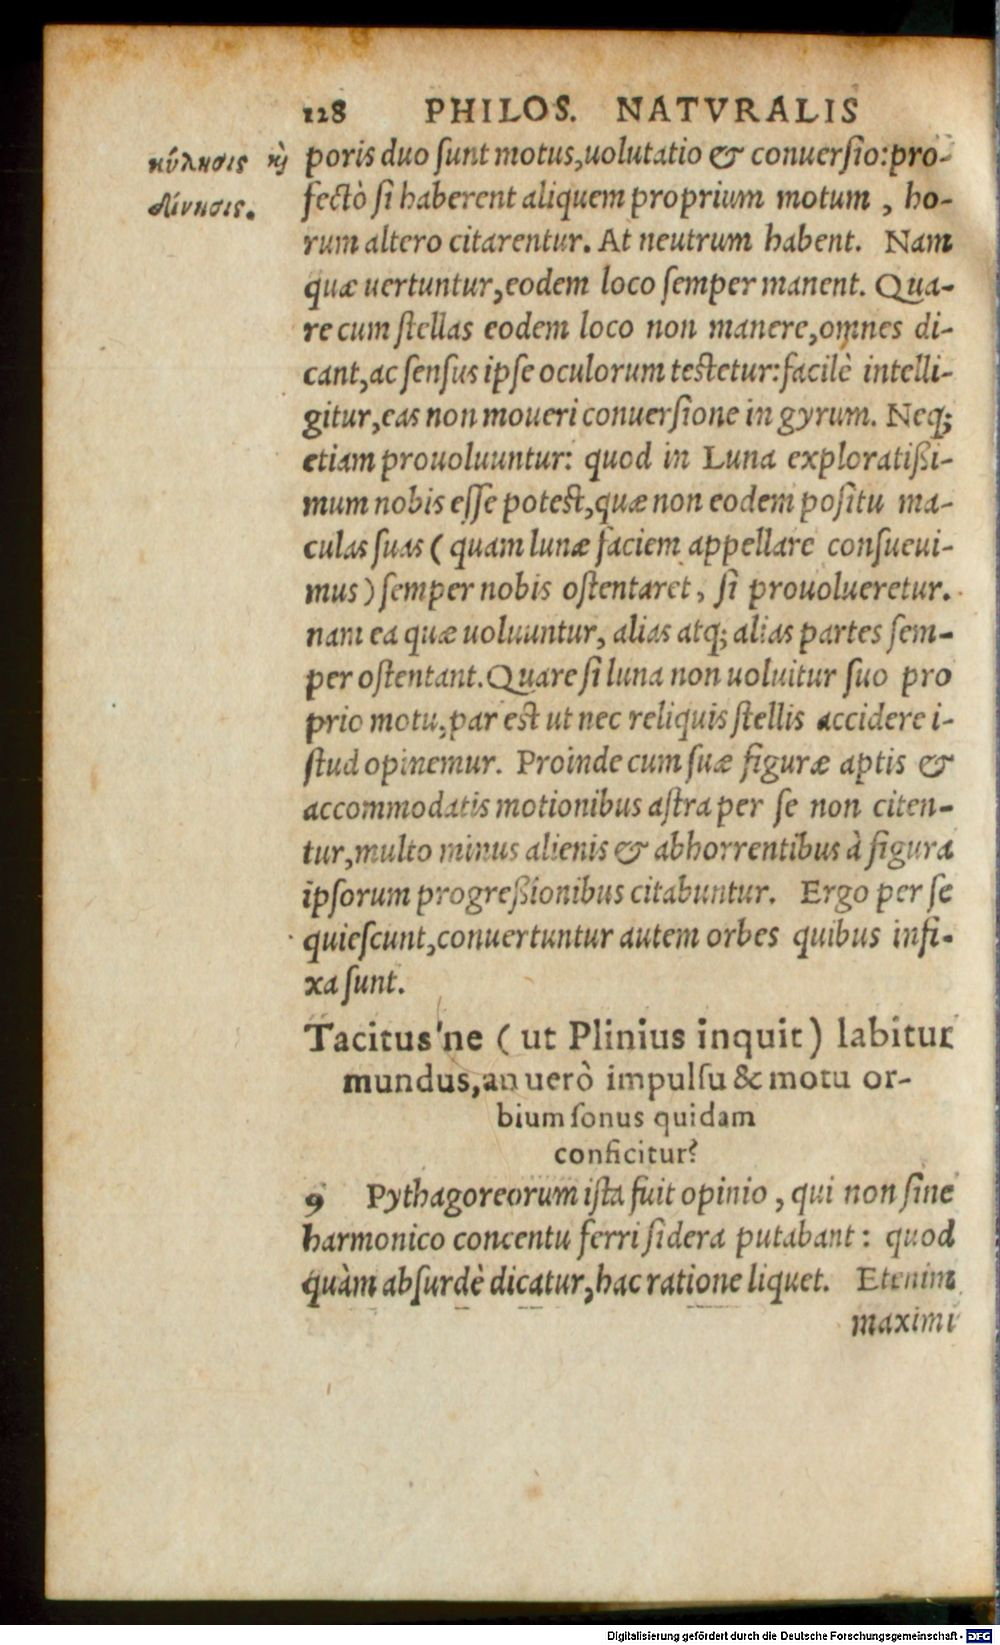 128 PHILOS. NATVRALIS
κύλησις κ̀
δίνησις.
poris duo ſunt motus,uolutatio & conuerſio:pro-
fectò ſi haberent aliquem proprium motum , ho-
rum altero citarentur. At neutrum habent. Nam
quæ uertuntur,eodem loco ſemper manent. Qua-
re cum ſtellas eodem loco non manere,omnes di-
cant,ac ſenſus ipſe oculorum teſtetur:facilè intelli-
gitur,eas non moueri conuerſione in gyrum. Neq;
etiam prouoluuntur: quod in Luna exploratißi-
mum nobis eſſe poteſt,quæ non eodem poſitu ma-
culas ſuas ( quam lunæ faciem appellare conſueui-
mus ) ſemper nobis oſtentaret , ſi prouolueretur.
nam ea quæ uoluuntur, alias atq; alias partes ſem-
per oſtentant. Quare ſi luna non uoluitur ſuo pro
prio motu,par eſt ut nec reliquis ſtellis accidere i-
ſtud opinemur. Proinde cum ſuæ figuræ aptis &
accommodatis motionibus aſtra per ſe non citen-
tur,multo minus alienis & abhorrentibus à figura
ipſorum progreßionibus citabuntur. Ergo per ſe
quieſcunt,conuertuntur autem orbes quibus infi-
xa ſunt.
Tacitus'ne ( ut Plinius inquit ) labitur
mundus,an uerò impulſu & motu or-
bium ſonus quidam
conficitur?
9 Pythagoreorum iſta fuit opinio , qui non ſine
harmonico concentu ferri ſidera putabant : quod
quàm abſurdè dicatur,hac ratione liquet. Etenim
maximi
Digitalisierung gefördert durch die Deutsche Forschungsgemeinschaft - DFG